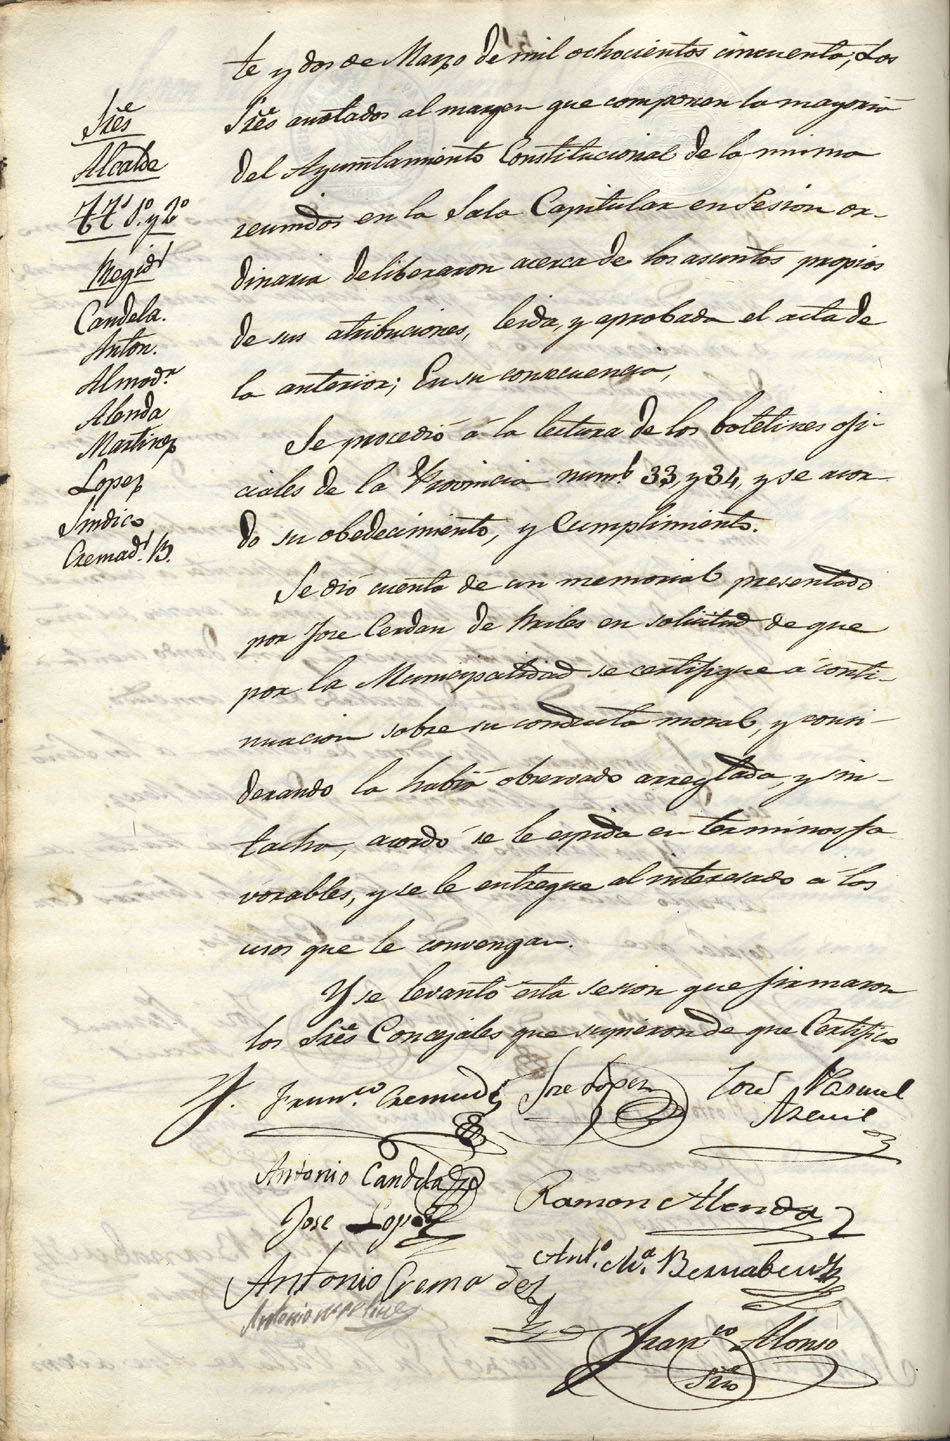 Sres
Alcalde
TTs 1º y 2º
Regids
Candela.
Anton.
Almodr
Alenda
Martinez
Lopez
Sindico
Cremads B.
te y dos de Marzo de mil ochocientos cincuenta, Los
Sres anotados al margen que componen la mayoria
del Ayuntamiento Constitucional de la misma
reunidos en la Sala Capitular en Sesion or-
dinaria deliberaron acerca de los asuntos propios
de sus atribuciones, leida, y aprobada el acta de
la anterior; En su consecuencia,
Se procedió á la lectura de los boletines ofi-
ciales de la Provincia nums 33, y 34, y se acor-
dó su obedecimiento, y Cumplimiento.
Se dió cuenta de un memorial presentado
por Jose Cerdan de Miles en solicitud de que
por la Municipalidad se certifique á conti-
nuacion sobre su conducta moral, y consi-
derando la habia observado arreglada, y sin
tacha, acordó se le expida en terminos fa
vorables, y se le entregue al interesado á los
usos que le convengan.
Y se levantó esta sesion que firmaron
los Sres Concejales que supieron de que Certifico
Y.
Francco Cremades
Jose Lopez
José Pascual
Asencio
Antonio Candela
Ramon Alenda
Jose Lopez
Anto Ma Bernabeu
Antonio Cremades
Antonio Martinez
Franco Alonso
Srio